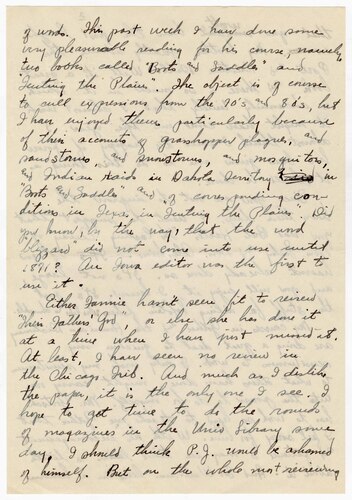 of words. This past week I have done some
very pleasurable reading for his course, namely
two books called "Boots and Saddles" and
"Tenting the Plains". The object is of course
to cull expressions from the 70's and 80's, but
I have enjoyed them particularly because
of their accounts of grasshopper plagues, and
sandstorms, and snowstorms, and mosquitoes,
and Indian Raids in Dakota Territory in
"Boots and Saddles" and of corresponding con-
ditions in Texas in "Tenting the Plains." Did
you know, by the way, that the word
"blizzard" did not come into use until
1871? An Iowa editor was the first to
use it.
Either Fannie hasn't seen fit to review
"Their Fathers' God" or else she has done it
at a time when I have just missed it.
At least, I have seen no review in
the Chicago Trib. And much as I dislike
the paper, it is the only one I see. I
hope to get time to do the rounds
of magazines in the Univ Library some
day. I should think P.J. would be ashamed
of himself. But on the whole most reviewing